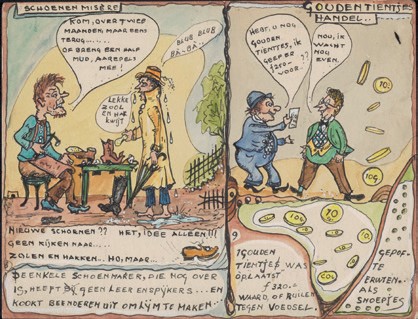 SCHOENEN MISÈRE
KOM, OVER TWEE
MAANDEN, MAAR EENS
TERUG......
OF BRENG EEN HALF
MUD, AARDAPELS
MEE!
BLUB, BLUB
BA-BA..
LEKKE
ZOOL
EN HAK
KWIJT
NIEUWE SCHOENEN?? HET, IDEE ALLEEN!!!
GEEN KIJKEN NAAR.....
ZOLEN EN HAKKEN.. HO, MAAR...
DE ENKELE SCHOENMAKER, DIE NOG OVER
IS, HEEFT GEEN LEER EN SPIJKERS....EN
KOOKT BEENDEREN UIT OM LIJM TE MAKEN
GOUDEN TIENTJES
HANDEL..
HEBT, U NOG
GOUDEN
TIENTJES, IK
GEEF ER
ƒ250-
VOOR. ??
NOU, IK
WACHT
NOG
EVEN.
10:
10G
10G
10
10G
1 GOUDEN
TIENTJE, WAS
OP LAATST
ƒ320.-
WAARD, OF RUILEN
TEGEN VOEDSEL.
GEPOF-
TE
ERWTEN..
ALS
SNOEPJES